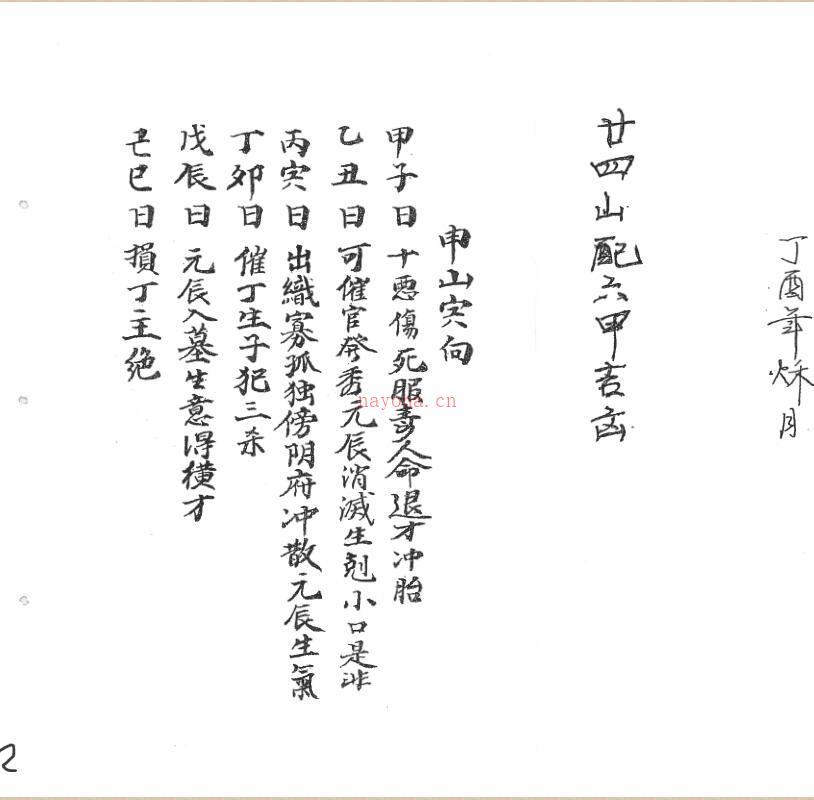 丁酉年烁月
廿四山配六甲吉凶
申山寅向
甲子日十恶傷死服毒人命退才冲胎
乙丑日可催官發秀元辰消滅生剋小口是非
丙寅日出織寡孤独傍阴府冲散元辰生氣
丁卯日催丁生子犯三杀
戊辰日元辰入墓生意得横才
己巳日損丁主绝
nayona.cn
2